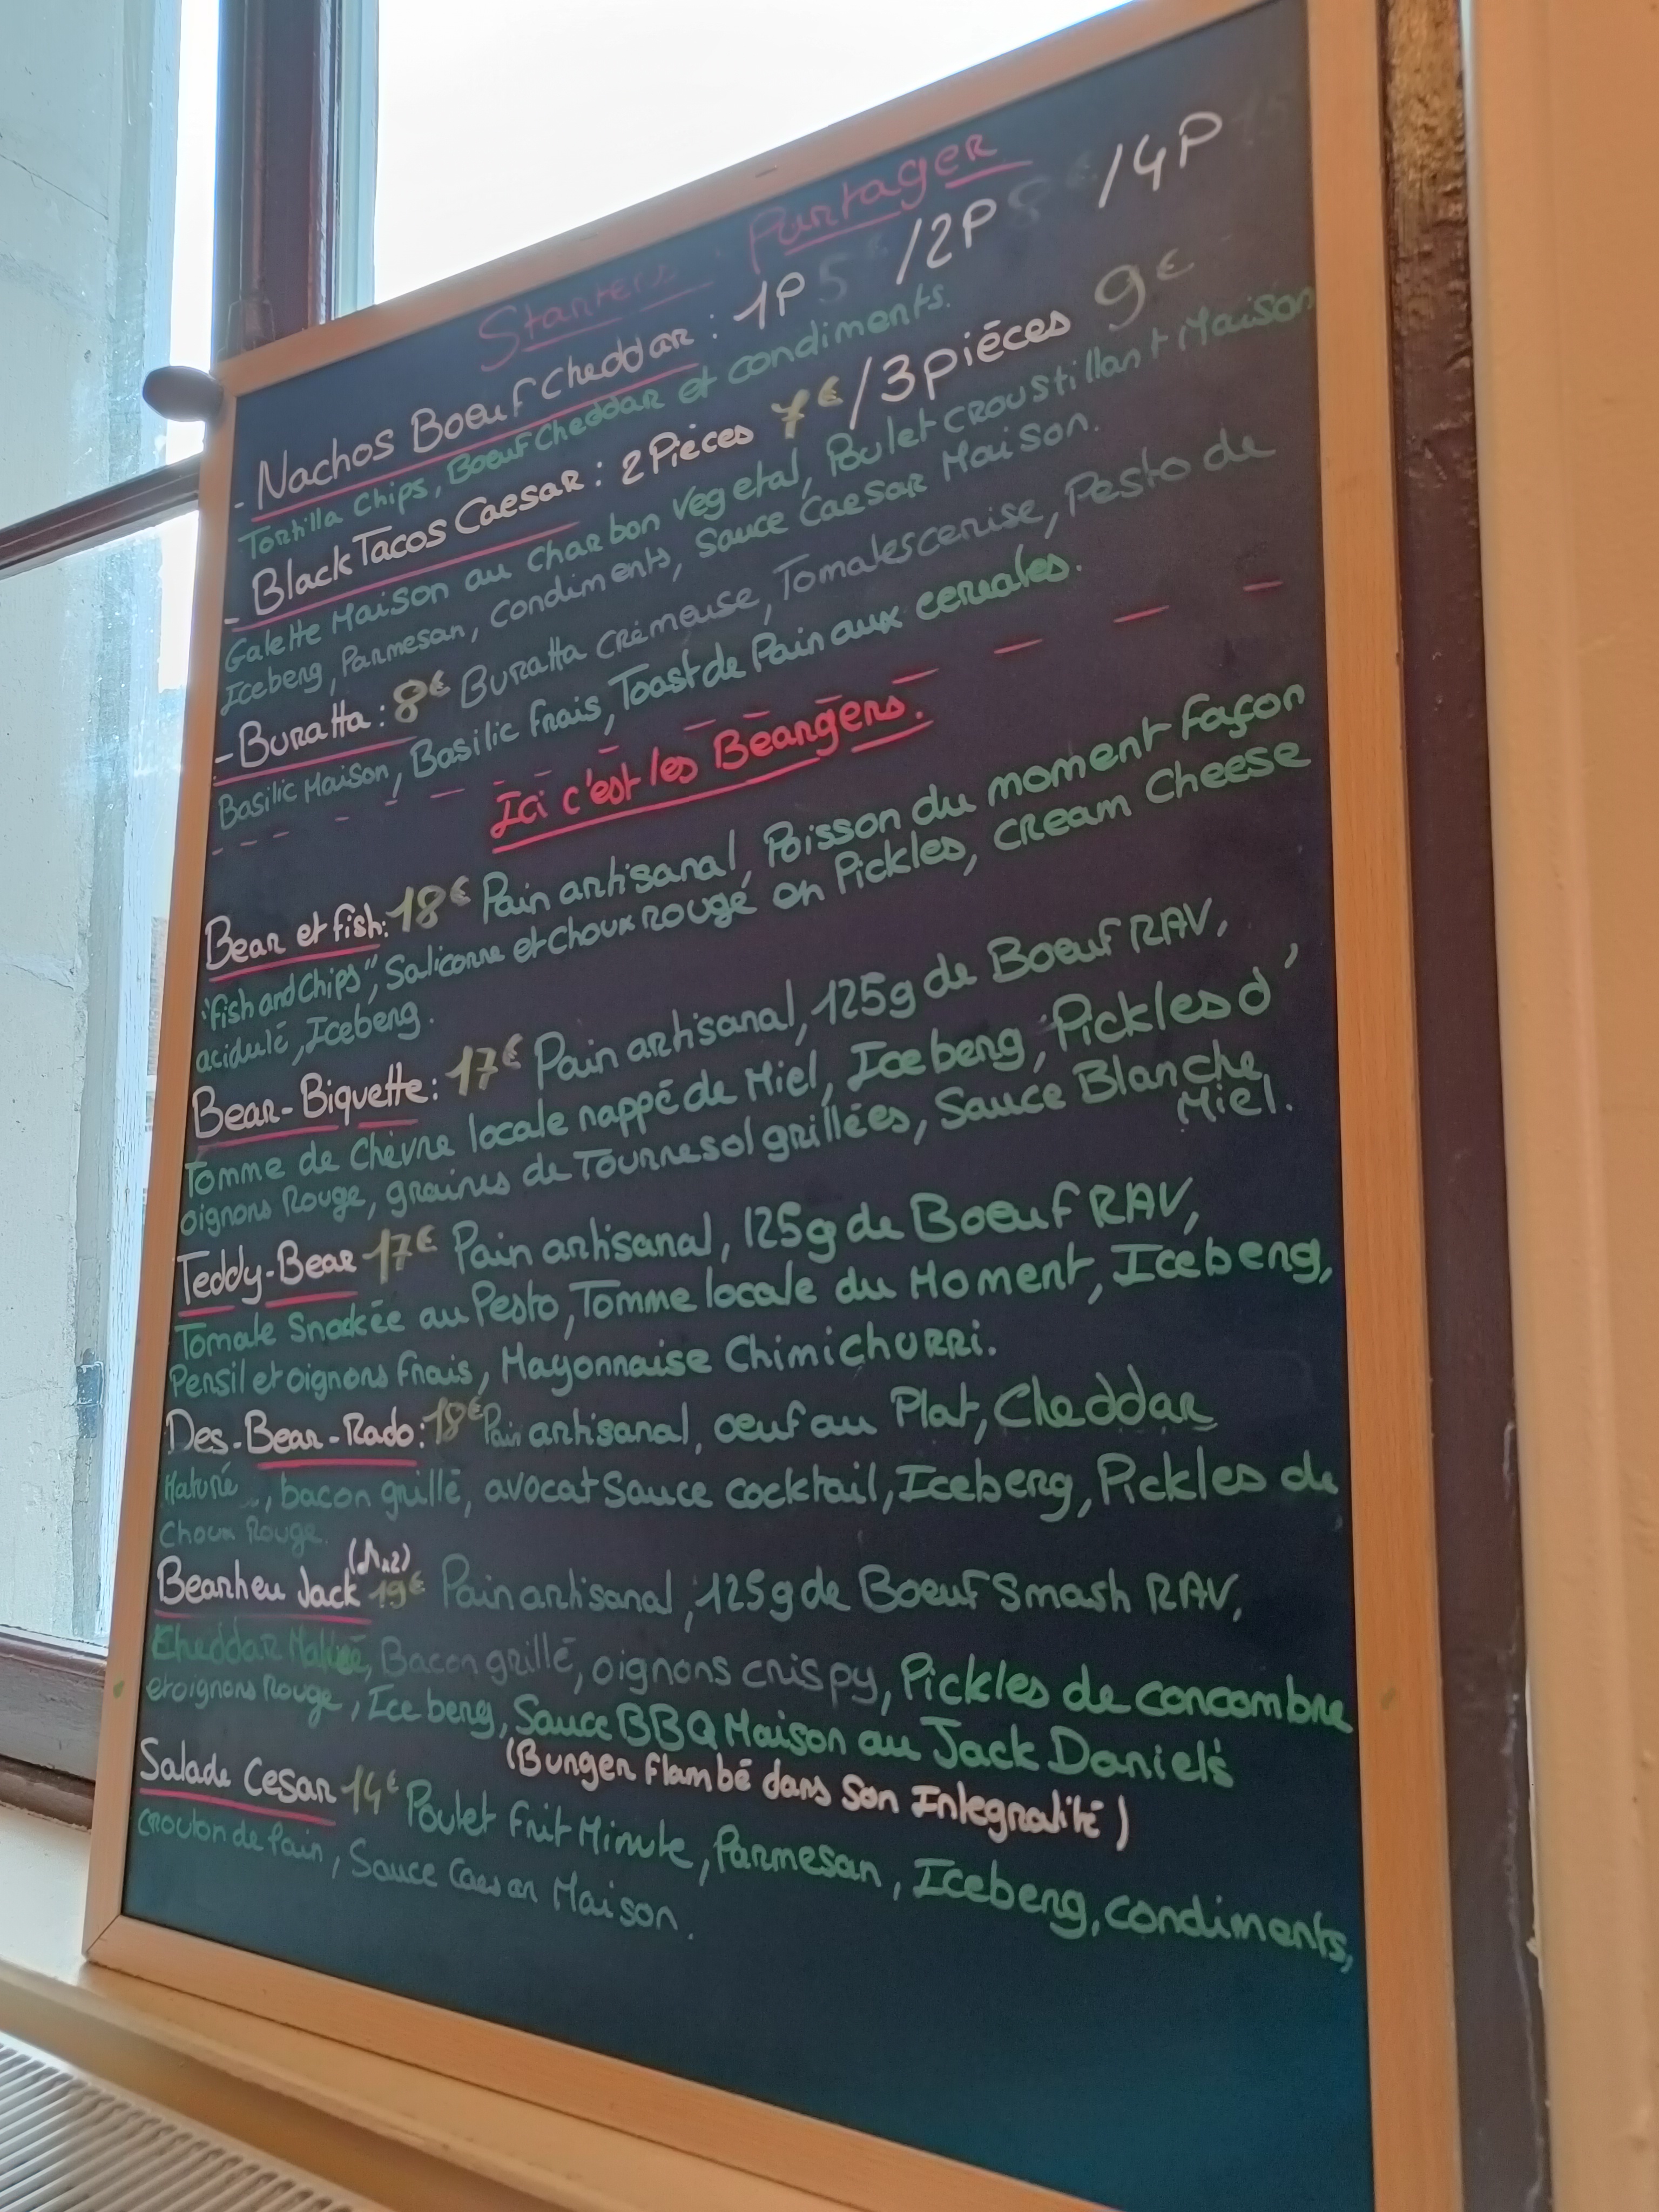 Starters à Partager
- Nachos Boeuf Cheddar : 1P 5€ /2P 8€ /4P 15
Tortilla Chips, Boeuf Cheddar et condiments.
- Black Tacos Caesar : 2 Pièces 7€/3 pièces 9€
Galette Maison au Charbon Vegetal, Poulet Croustillant Maison
Iceberg, Parmesan, Condiments, Sauce Caesar Maison.
- Buratta : 8€ Buratta crémeuse, Tomates cerise, Pesto de
Basilic Maison, Basilic frais, Toast de Pain aux cereales.
Ici c'est les Beargers.
Bear et fish: 18€ Pain artisanal, Poisson du moment façon
"fish and Chips", Salicorne et choux Rouge en Pickles, Cream Cheese
acidulé, Iceberg.
Bear-Biquette: 17€ Pain artisanal, 125g de Boeuf RAV,
Tomme de Chèvre locale nappé de Miel, Iceberg, Pickles d'
oignons Rouge, graines de Tournesol grillées, Sauce Blanche
Miel.
Teddy-Bear 17€ Pain artisanal, 125g de Boeuf RAV,
Tomate Snackée au Pesto, Tomme locale du Moment, Iceberg,
Persil et oignons frais, Mayonnaise Chimichurri.
Des-Bear-Rado: 18€ Pain artisanal, oeuf au Plat, Cheddar
Maturé, bacon grillé, avocat Sauce cocktail, Iceberg, Pickles de
Choux Rouge.
Bearheu Jack 19€ Pain artisanal, 125g de Boeuf Smash RAV,
Cheddar Maturé, Bacon grillé, oignons crispy, Pickles de concombre
et oignons Rouge, Iceberg, Sauce BBQ Maison au Jack Daniel's
(Burger flambé dans Son Integralité)
Salade Cesar 14€ Poulet frit Minute, Parmesan, Iceberg, condiments,
crouton de Pain, Sauce Caesar Maison.